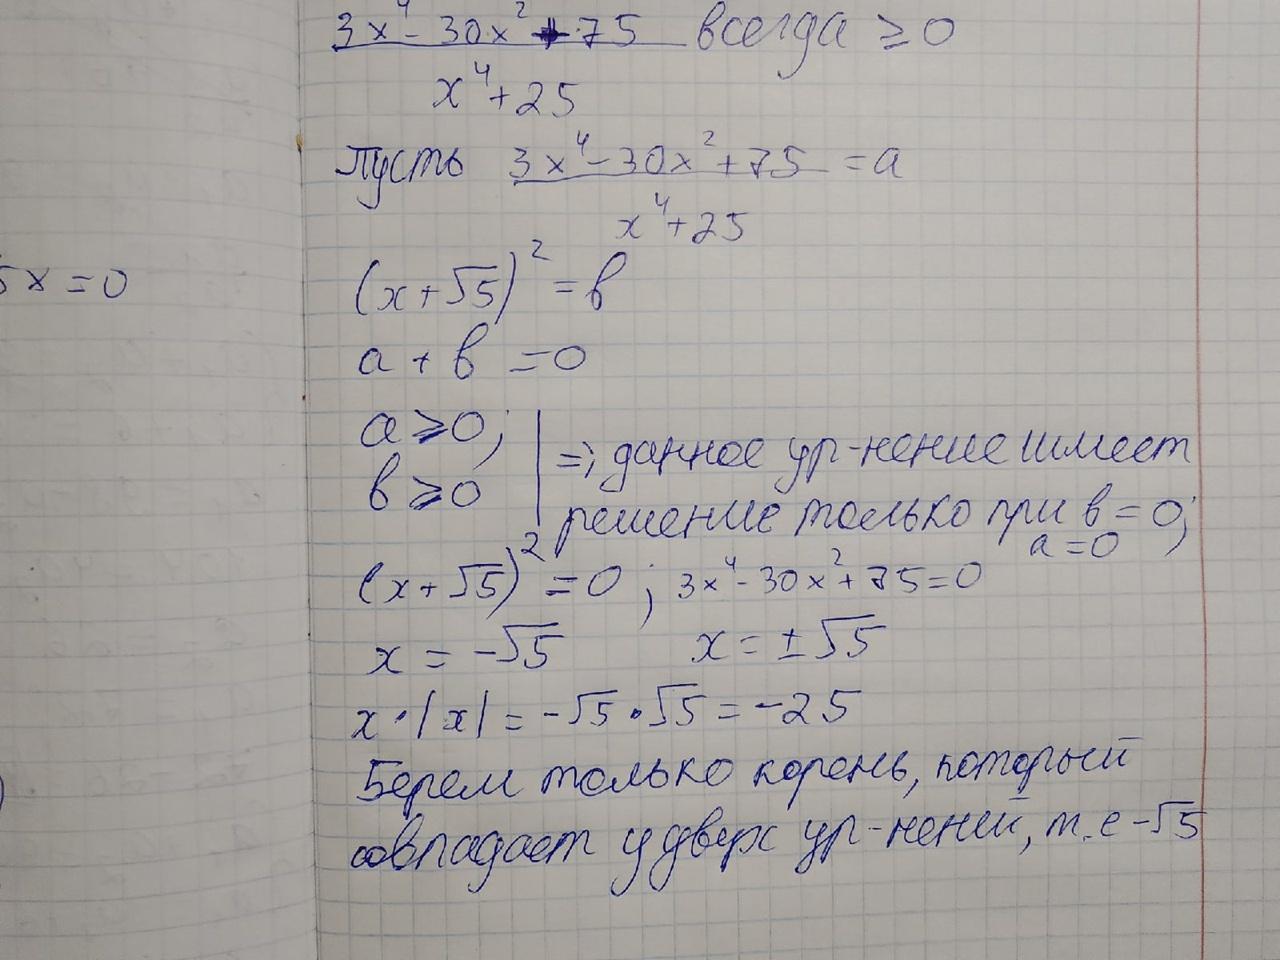 3x⁴ - 30x² + 75 всегда ≥ 0
x⁴ + 25
Пусть 3x⁴ - 30x² + 75 = a
x⁴ + 25
(x + √5)² = b
5x = 0
a + b = 0
a ≥ 0; ⇒ данное ур-нение имеет
b ≥ 0 решение только при b = 0;
a = 0
(x + √5)² = 0 ; 3x⁴ - 30x² + 75 = 0
x = -√5 x = ±√5
x · |x| = -√5 · √5 = -25
Берем только корень, который
совпадает у двух ур-нений, т.е -√5